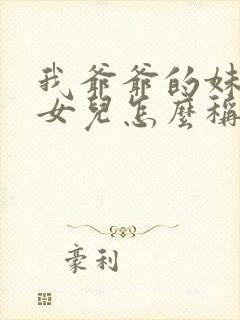 我爺爺的妹
女兒怎麼稱
豪利